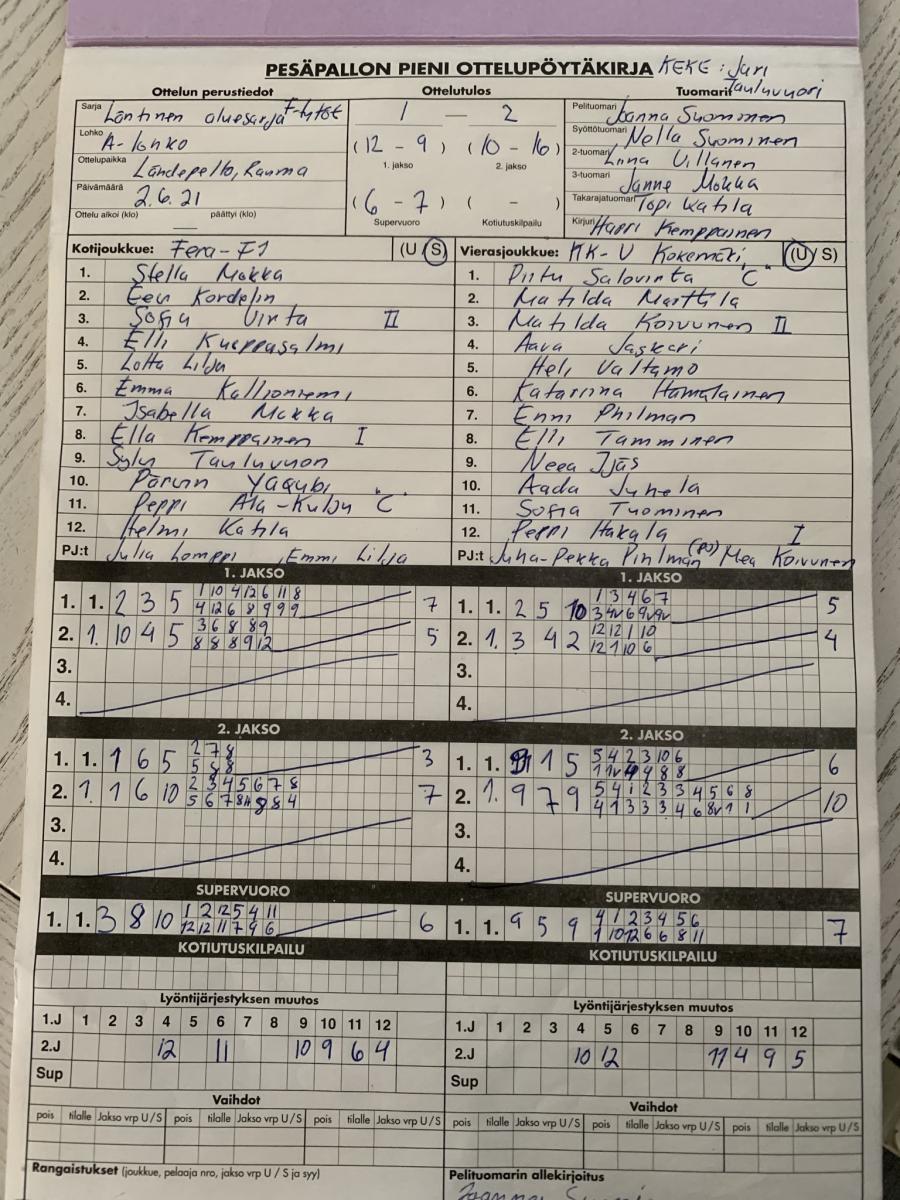 PESÄPALLON PIENI OTTELUPÖYTÄKIRJA KEKE : Jari Tauluvuori
Ottelun perustiedot Ottelutulos Tuomarit
Sarja Läntinen aluesarja F-tytöt
Lohko A-lohko
Ottelupaikka Lähdepelto, Rauma
Päivämäärä 2.6.21
Ottelu alkoi (klo) — päättyi (klo)
1 — 2
(12 - 9) (10 - 16)
1. jakso 2. jakso
(6 - 7) ( - )
Supervuoro Kotiutuskilpailu
Pelituomari Joanna Suominen
Syöttötuomari Nella Suominen
2-tuomari Liina Villanen
3-tuomari Janne Mokka
Takarajatuomari Topi Katila
Kirjuri Harri Kemppainen
Kotijoukkue: Fera-F1 (U / S)
1. Stella Mokka
2. Eevi Kordelin
3. Sofia Virta II
4. Elli Kueppasalmi
5. Lotta Lilja
6. Emma Kallioniemi
7. Isabella Mokka
8. Ella Kemppainen I
9. Sylvi Tauluvuori
10. Parvin Yaqubi
11. Peppi Ala-Kulju "C"
12. Helmi Katila
PJ:t Julia Lomppi, Emmi Lilja
Vierasjoukkue: KK-V Kokemäki (U / S)
1. Piitu Salovirta "C"
2. Matilda Marttila
3. Matilda Koivunen II
4. Aava Jaskari
5. Heli Valtamo
6. Katariina Hämäläinen
7. Enni Philman
8. Elli Tamminen
9. Neea Ijäs
10. Aada Juhela
11. Sofia Tuominen
12. Peppi Hakala I
PJ:t Juha-Pekka Pihlman (PJ) Mea Koivunen
1. JAKSO
1. 1. 2 3 5 1 10 4 12 6 11 8 7
4 12 6 8 9 9 9
2. 1. 10 4 5 3 6 8 8 9 5
8 8 8 9 12
3.
4.
2. JAKSO
1. 1. 1 6 5 2 7 8 3
5 8 8
2. 1. 1 6 10 2 3 4 5 6 7 8 7
5 6 7 8 8 4
3.
4.
SUPERVUORO
1. 1. 3 8 10 1 2 12 5 4 11 6
12 12 11 7 9 6
KOTIUTUSKILPAILU
Lyöntijärjestyksen muutos
1.J 1 2 3 4 5 6 7 8 9 10 11 12
2.J 12 11 10 9 6 4
Sup
Vaihdot
pois tilalle Jakso vrp U / S pois tilalle Jakso vrp U / S pois tilalle Jakso vrp U / S
Rangaistukset (joukkue, pelaaja nro, jakso vrp U / S ja syy)
1. JAKSO
1. 1. 2 5 10 1 3 4 6 7 5
3 4v 6 9v 9v
2. 1. 3 4 2 12 12 1 10 4
12 1 10 6
3.
4.
2. JAKSO
1. 1. 1 5 5 4 2 3 10 6 6
11v 9 9 8 8
2. 1. 9 7 9 5 4 1 2 3 3 4 5 6 8 10
4 1 3 3 3 4 6 8v 1 1
3.
4.
SUPERVUORO
1. 1. 9 5 9 4 1 2 3 4 5 6 7
1 10 12 6 6 8 11
KOTIUTUSKILPAILU
Lyöntijärjestyksen muutos
1.J 1 2 3 4 5 6 7 8 9 10 11 12
2.J 10 12 11 4 9 5
Sup
Vaihdot
pois tilalle Jakso vrp U / S pois tilalle Jakso vrp U / S pois tilalle Jakso vrp U / S
Pelituomarin allekirjoitus